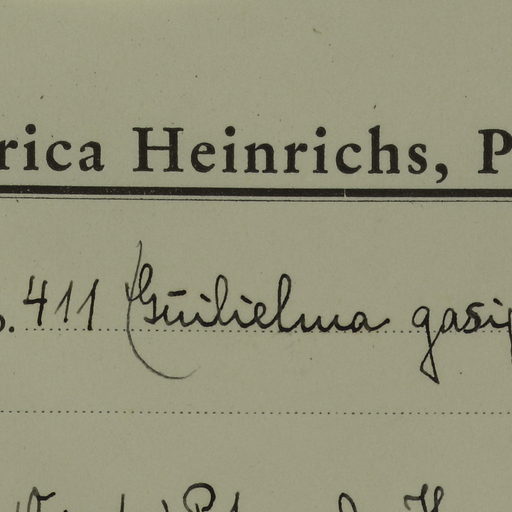 rica Heinrichs, P
. 411 (Guilielma gasip